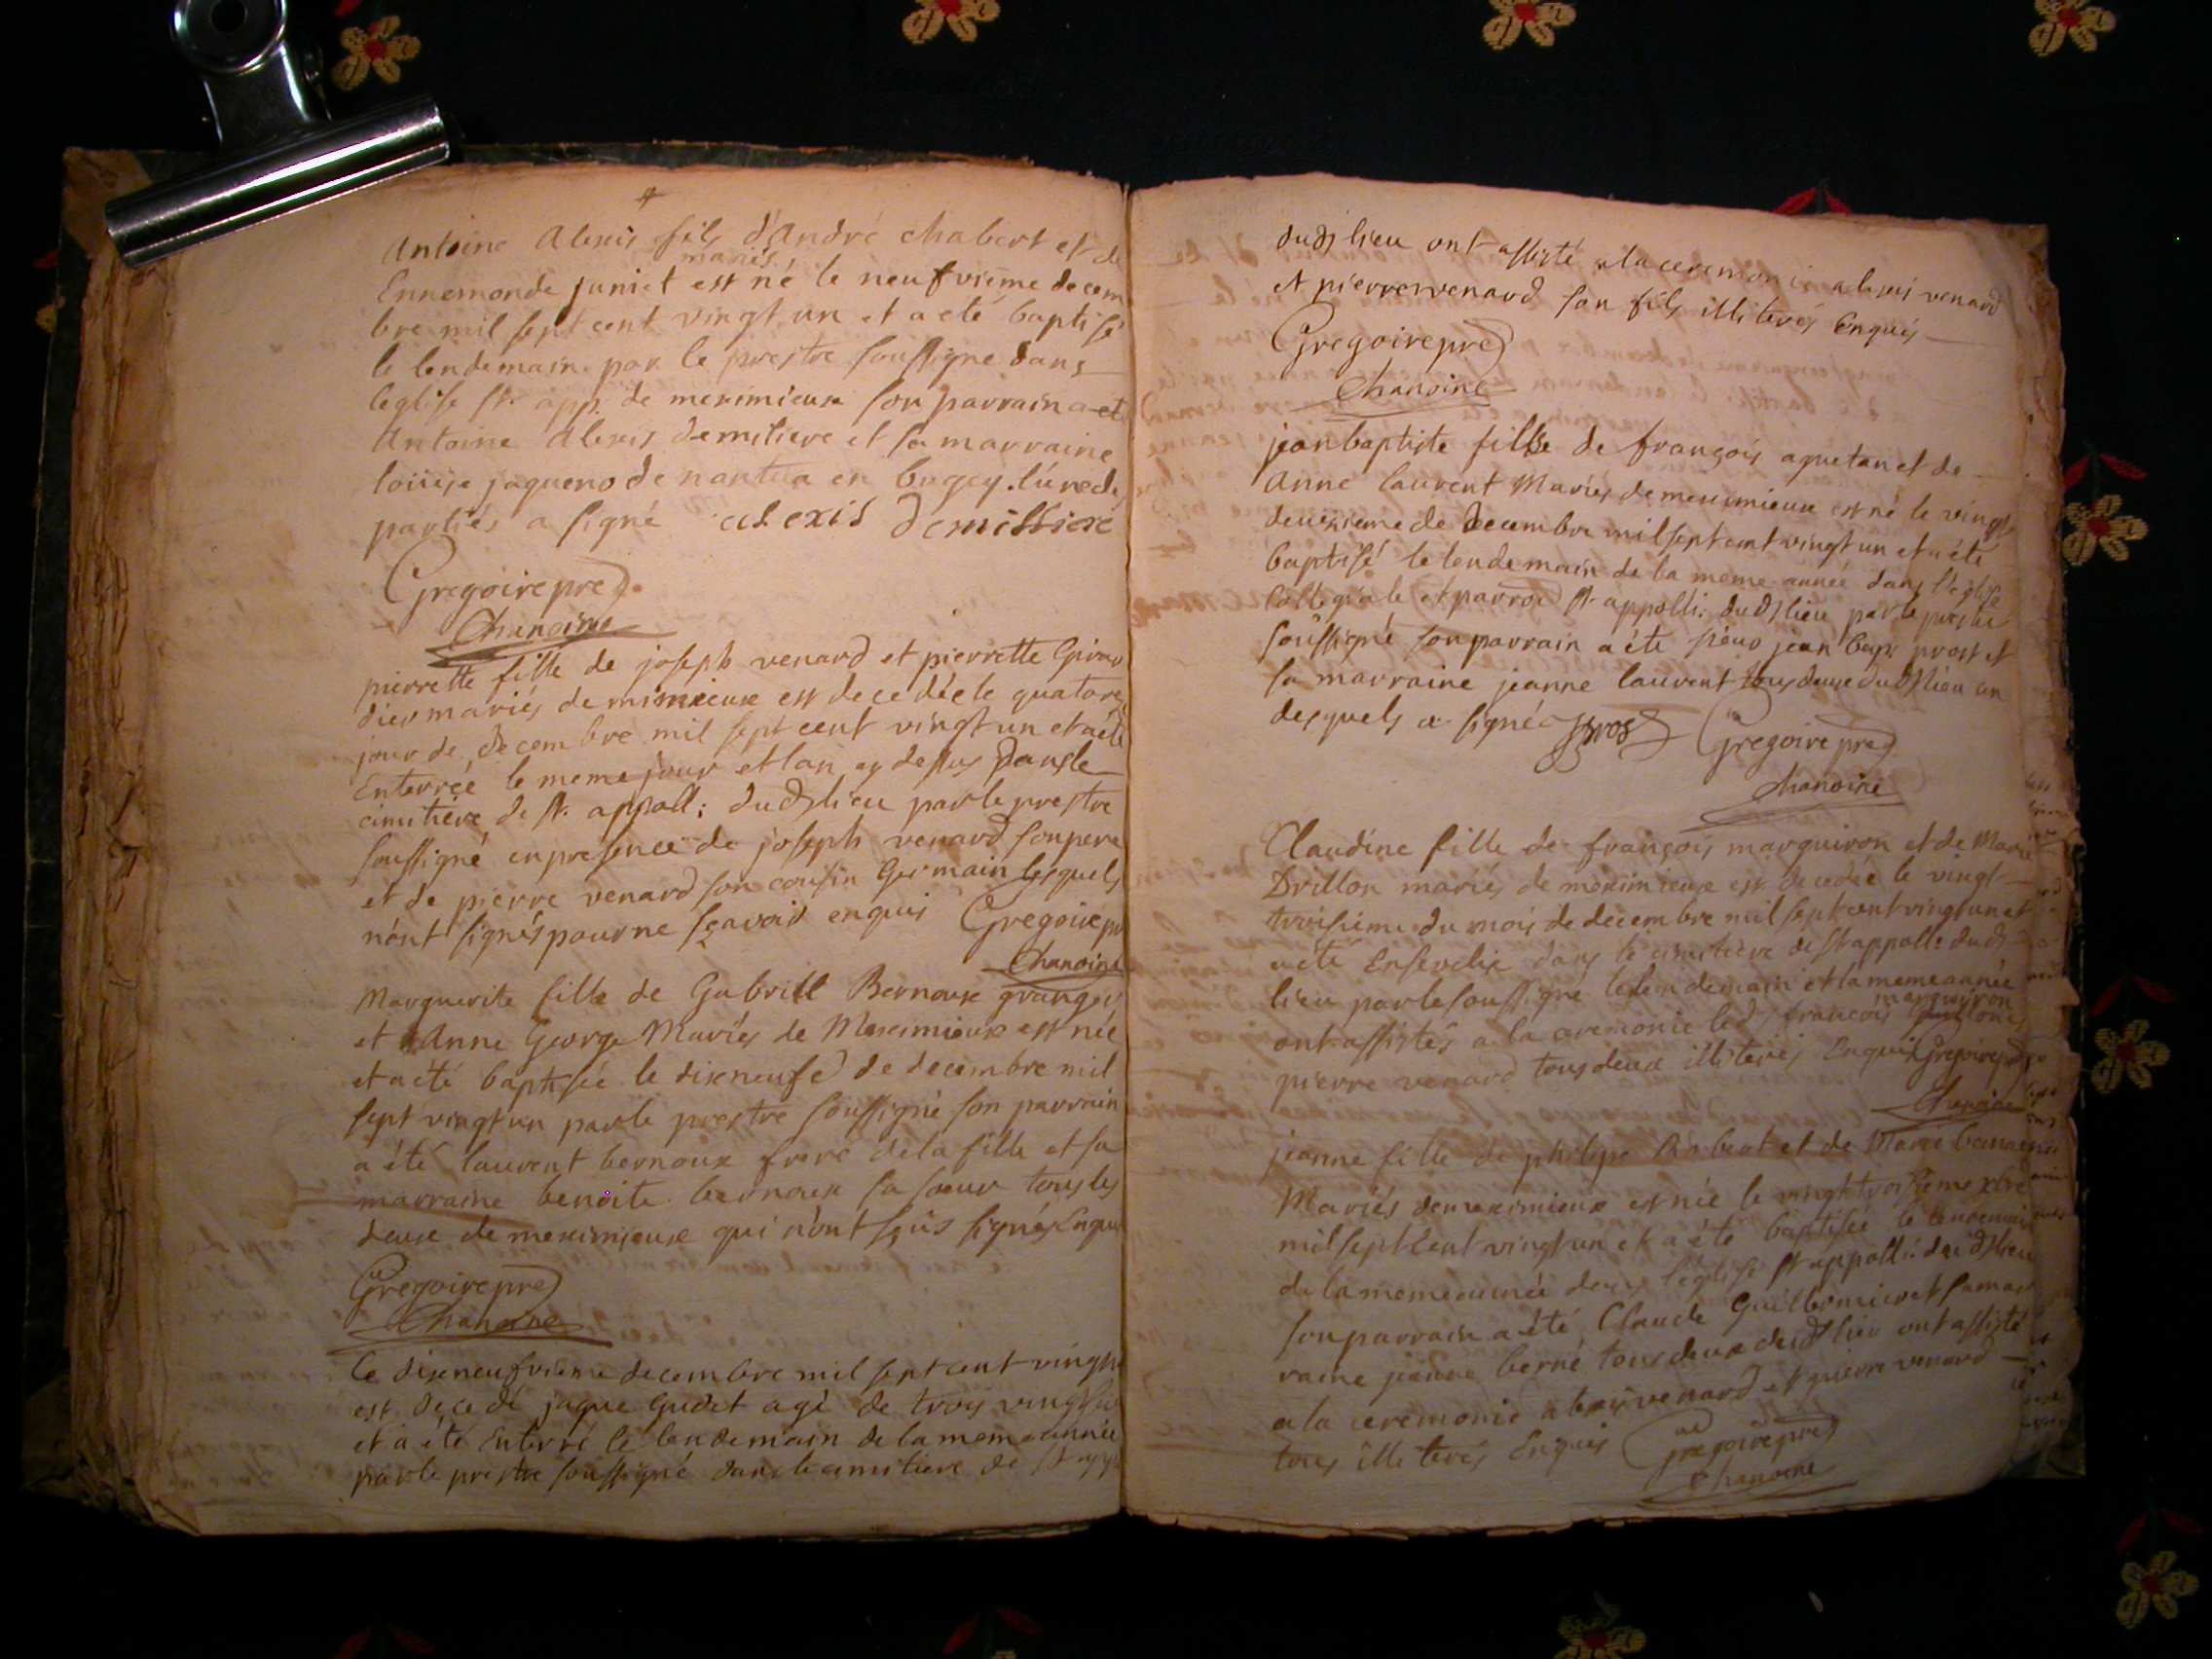 Antoine Alexis fils d'André chabert et de
mariés
Ennemonde juniet est né le neufvieme decem
bre mil sept cent vingt un et a eté baptisé
le lendemain par le prestre soussigne dans
leglise st. app. de meximieux son parrain a eté
Antoine Alexis demitiere et sa marraine
loüise jaqueno de nantua en bugey. lúne de
partiés a signé alexis demissiere
Gregoire pre
Chanoine
pierrette fille de joseph venard et pierrette Girau
dier mariés de mximieux est decedée le quatorz
jour de decembre mil sept cent vingt un et a eté
Enterrée le meme jour et lan cy dessus dans le
cimitiere de st. appoll: dud lieu par le prestre
soussigné en presence de joseph venard son pere
et de pierre venard son cousin Germain lesquels
n'ont signés pour ne sçavoir enquis Gregoire pr
Chanoine
Marguerite fille de Gabrill Bernoux granger
et Anne George Mariés de Meximieux est née
et a eté baptisée le dixneufe de decembre mil
sept vingt un par le prestre soussigné son parrain
a été laurent bernoux frere de la fille et sa
marraine benoite bernoux sa soeur tous les
deux de meximieux qui n'ont sçus signés Enqui
Gregoire pre
Chanoine
Le dixneufvieme decembre mil sept cent vingt
est decedé jaque Gudet agé de trois vingt
et a été Enterré le lendemain de la meme année
par le prestre soussigné dans le cimitiere de st app
dud lieu ont assisté a la ceremonie alexis venard
et pierre venard son fils illiterés Enquis
Gregoire pre
Chanoine
jean baptiste fils de françois aguetan et de
Anne laurent Mariés de meximieux est né le vingt
deuxieme de Decembre mil sept cent vingt un et a été
baptisé le lendemain de la meme année dans l'eglise
Collegiale et parroiss st. appolli: dud lieu par le prestre
soussigné son parrain a été sieur jean bap: prost et
sa marraine jeanne laurent tous deux dud lieu un
desquels a signé Pros Gregoire pre
Chanoine
Claudine fille de françois marguiron et de Marie
Drillon mariés de meximieux est decedée le vingt
troisieme du mois de decembre mil sept cent vingt un et
a eté Ensevelie dans le cimitiere de st appolli dud
lieu par le soussigne le lendemain et la meme année
marguiron
ont assistés a la ceremonie led françois
pierre venard tous deux illiterés Enquis Gregoire pre
Chanoine
jeanne fille de philipe Robert et de Marie
Mariés de meximieux est née le vingt troisieme xbre
mil sept cent vingt un et a été baptisée le lendemain
de la meme année dans l'église st appolli: dud lieu
son parrain a été Claude Guillermier et sa mar
raine jeanne berné tous deux dud lieu ont assisté
a la ceremonie alexis venard et pierre venard
tous illiterés Enquis Gregoire pre
Chanoine